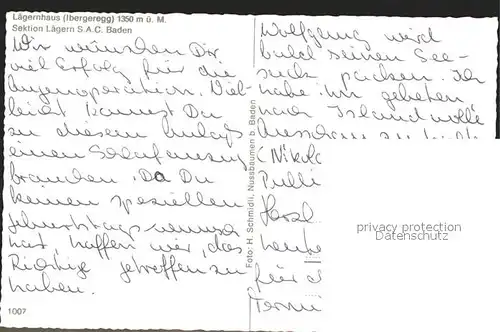 Lägernhaus (Ibergeregg) 1350 m ü. M.
Sektion Lägern S.A.C. Baden
Wir wünschen Dir
viel Erfolg für die
Augenoperation. Viel-
leicht kannst Du
zu diesem Anlass
einen Schlafanzug
brauchen. Da Du
keinen speziellen
Geburtstagswunsch
hast, hoffen wir, das
Richtige getroffen zu
haben.
1007
Foto: H. Schmidli, Nussbaumen b. Baden
Wolfgang wird
bald seinen See-
sack packen. Ich
habe ihn gebeten,
nach Island
Nikol
Pulli
Herzl
heute
für d
Termi
privacy protection
Datenschutz